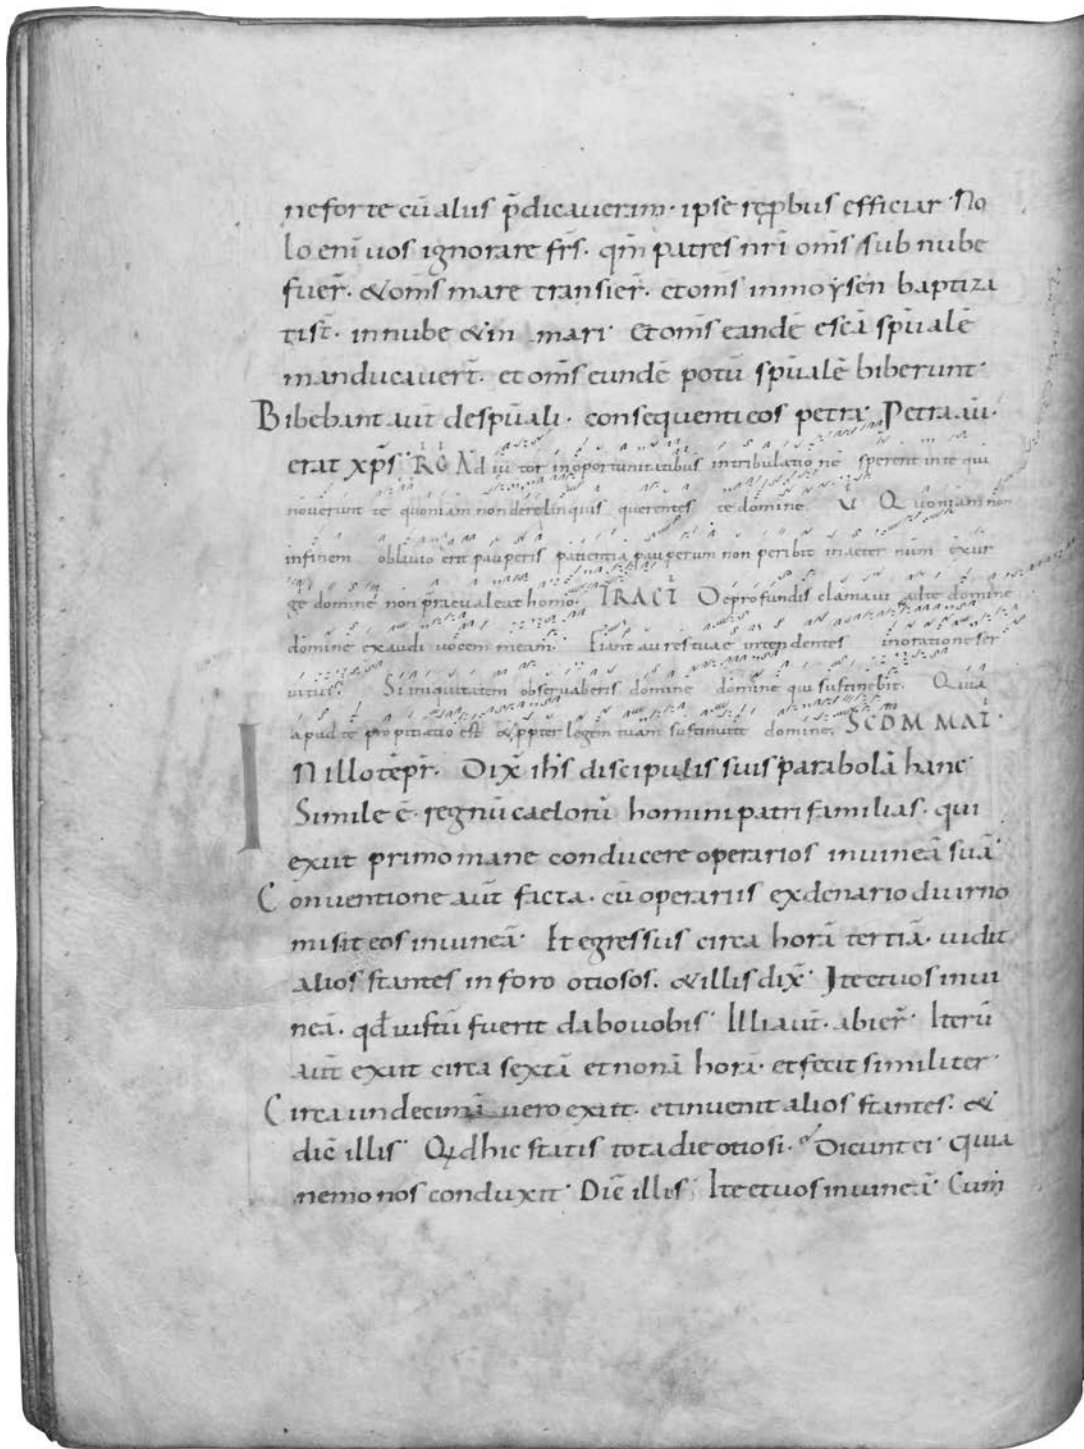 neforte cū aliis p̄dicauerim · ipse rep̱bus efficiar · No
lo eni̅ uos ignorare fr̄s · qm̄ patres nr̄i om̄s sub nube
fuer̄ · & om̄s mare transier̄ · et om̄s in moẏsen baptiza
ti st̄ · in nube & in mari · Et om̄s eandē escā sp̄ualē
manducauer̄t · et om̄s eundē potū sp̄ualē biberunt ·
Bibebant aut̄ de sp̄uali · consequenti eos petra · Petra au̅ ·
erat xp̄s · R̄G Adiutor inoportunitatibus intribulatione sperent inte qui
noverunt te quoniam non derelinquis querentes te domine V̄ Quoniam non
infinem oblivio erit pauperis patientia pauperum non peribit inaeternum exur
ge domine non praevaleat homo TRACT̄ Deprofundis clamaui adte domine
domine exaudi uocem meam · Fiant aures tuae intendentes inoratione ser
ui tui · Si iniquitatem observaberis domine domine qui sustinebit · Quia
apud te propitiatio est & p̱pter legem tuam sustinui te domine · SCDM MAT̄ ·
IN illo tēpr̄ · Dix̄ ih̄s discipulis suis parabolā hanc
Simile ē · regnū caelorū homini patri familias · qui
exiit primo mane conducere operarios in uineā suā ·
Conuentione aut̄ facta · cū operariis ex denario diurno
misit eos in uineā · Et egressus circa horā tertiā · uidit
alios stantes in foro otiosos · & illis dix̄ · Ite et uos in ui
neā · qd̄ iustū fuerit dabo uobis · Illi aut̄ · abier̄ · Iterū
aut̄ exiit circa sextā et nonā horā · et fecit similiter ·
Circa undecimā uero exiit · et inuenit alios stantes · &
dic̄ illis · Qd hic statis tota die otiosi · Dicunt ei · Quia
nemo nos conduxit · Dic̄ illis · Ite et uos in uineā · Cum